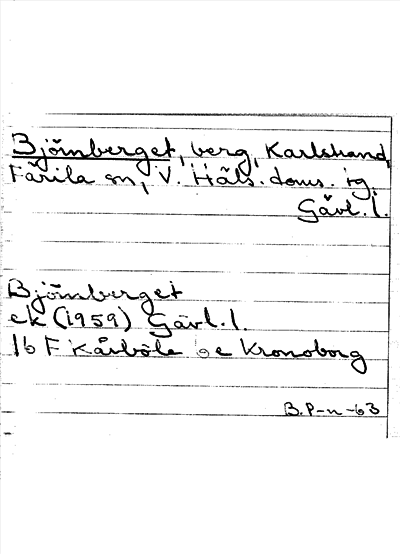 Björnberget, berg, Karlstrand,
Färila sn, V. Häls. doms. tg.
Gävl. l.
Björnberget
ek (1959) Gävl. l.
16 F Kårböle oe Kronoborg
B. P-n -63